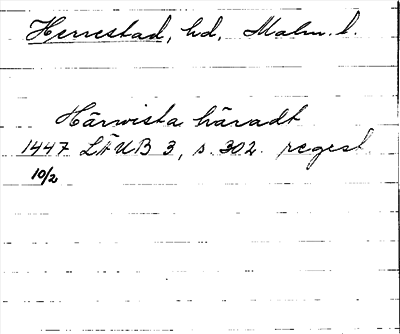 Herrestad, hd, Malm. l.
Härvista häradt
1447 LÄUB 3, s. 302. regest
10/2